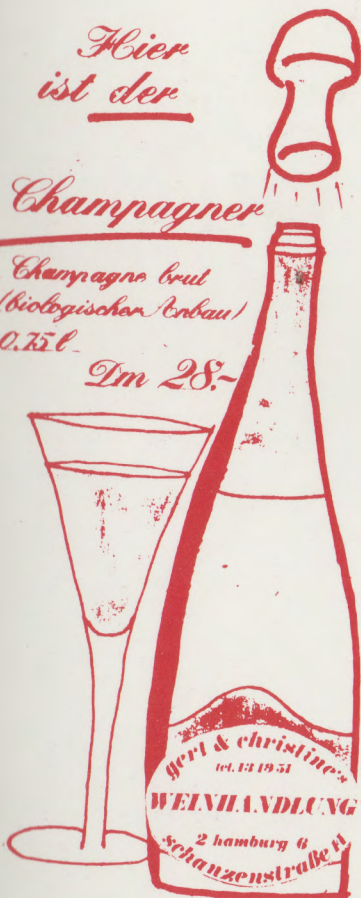 Hier
ist der
Champagner
Champagne brut
(biologischer Anbau)
0.75 l
Dm 28.-
gert & christine's
tel. 13 19 51
WEINHANDLUNG
2 hamburg 6
schanzenstraße